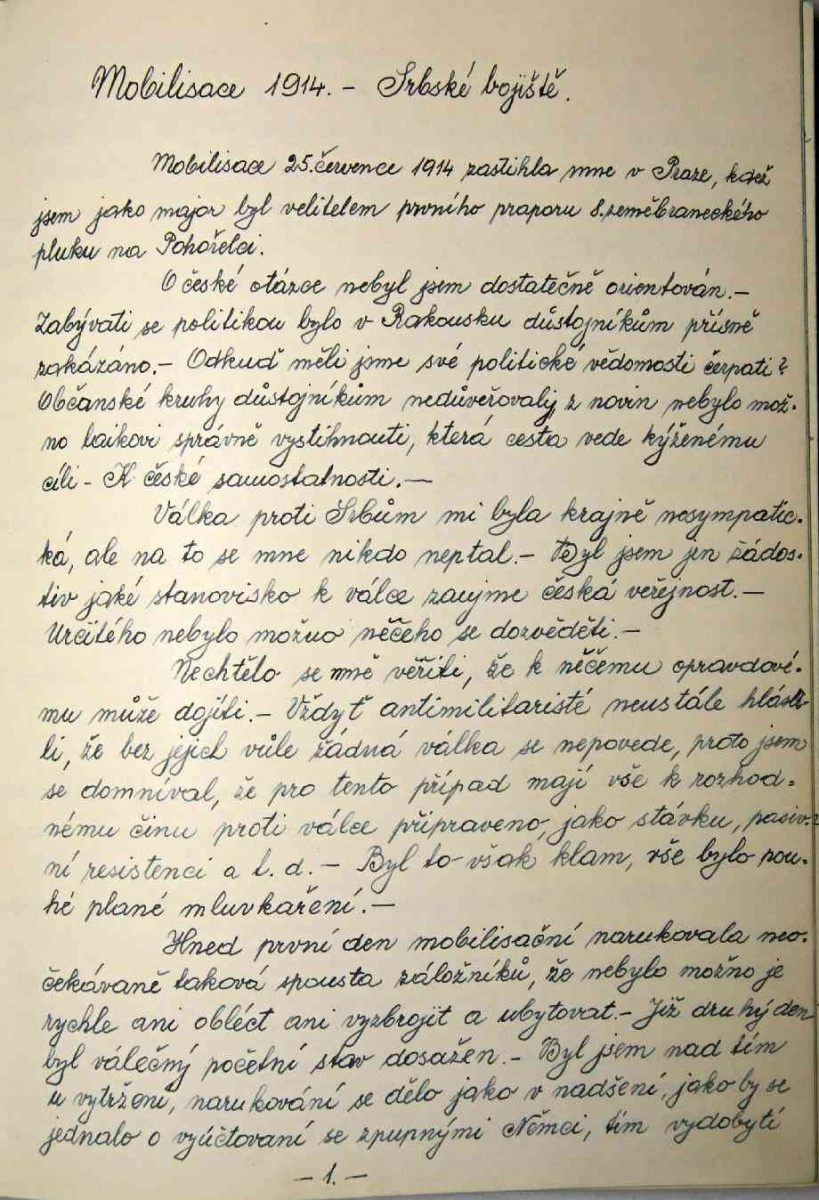 Mobilisace 1914. - Srbské bojiště.
Mobilisace 25. července 1914 zastihla mne v Praze, kdež
jsem jako major byl velitelem prvního praporu 8. zeměbraneckého
pluku na Pohořelci.
O české otázce nebyl jsem dostatečně orientován. -
Zabývati se politikou bylo v Rakousku důstojníkům přísně
zakázáno. - Odkuď měli jsme své politické vědomosti čerpati?
Občanské kruhy důstojníkům nedůvěřovaly z novin nebylo mož-
no laikovi správně vystihnouti, která cesta vede kýženému
cíli - K české samostatnosti. —
Válka proti Srbům mi byla krajně nesympatic-
ká, ale na to se mne nikdo neptal. - Byl jsem jen žádos-
tiv jaké stanovisko k válce zaujme česká veřejnost. —
Určitého nebylo možno něčeho se dozvěděti. -
Nechtělo se mně věřiti, že k něčemu opravdové-
mu může dojíti. - Vždyť antimilitaristé neustále hlási-
li, že bez jejich vůle žádná válka se nepovede, proto jsem
se domníval, že pro tento případ mají vše k rozhod-
nému činu proti válce připraveno, jako stávku, pasiv-
ní resistenci a t. d. - Byl to však klam, vše bylo pou-
hé plané mluvkaření. -
Hned první den mobilisační narukovala neo-
čekávaně taková spousta záložníků, že nebylo možno je
rychle ani obléct ani vyzbrojit a ubytovat. - Již druhý den
byl válečný početní stav dosažen. - Byl jsem nad tím
u vytržení, narukování se dělo jako v nadšení, jako by se
jednalo o vyúčtovaní se zpupnými Němci, tím vydobytí
- 1. -